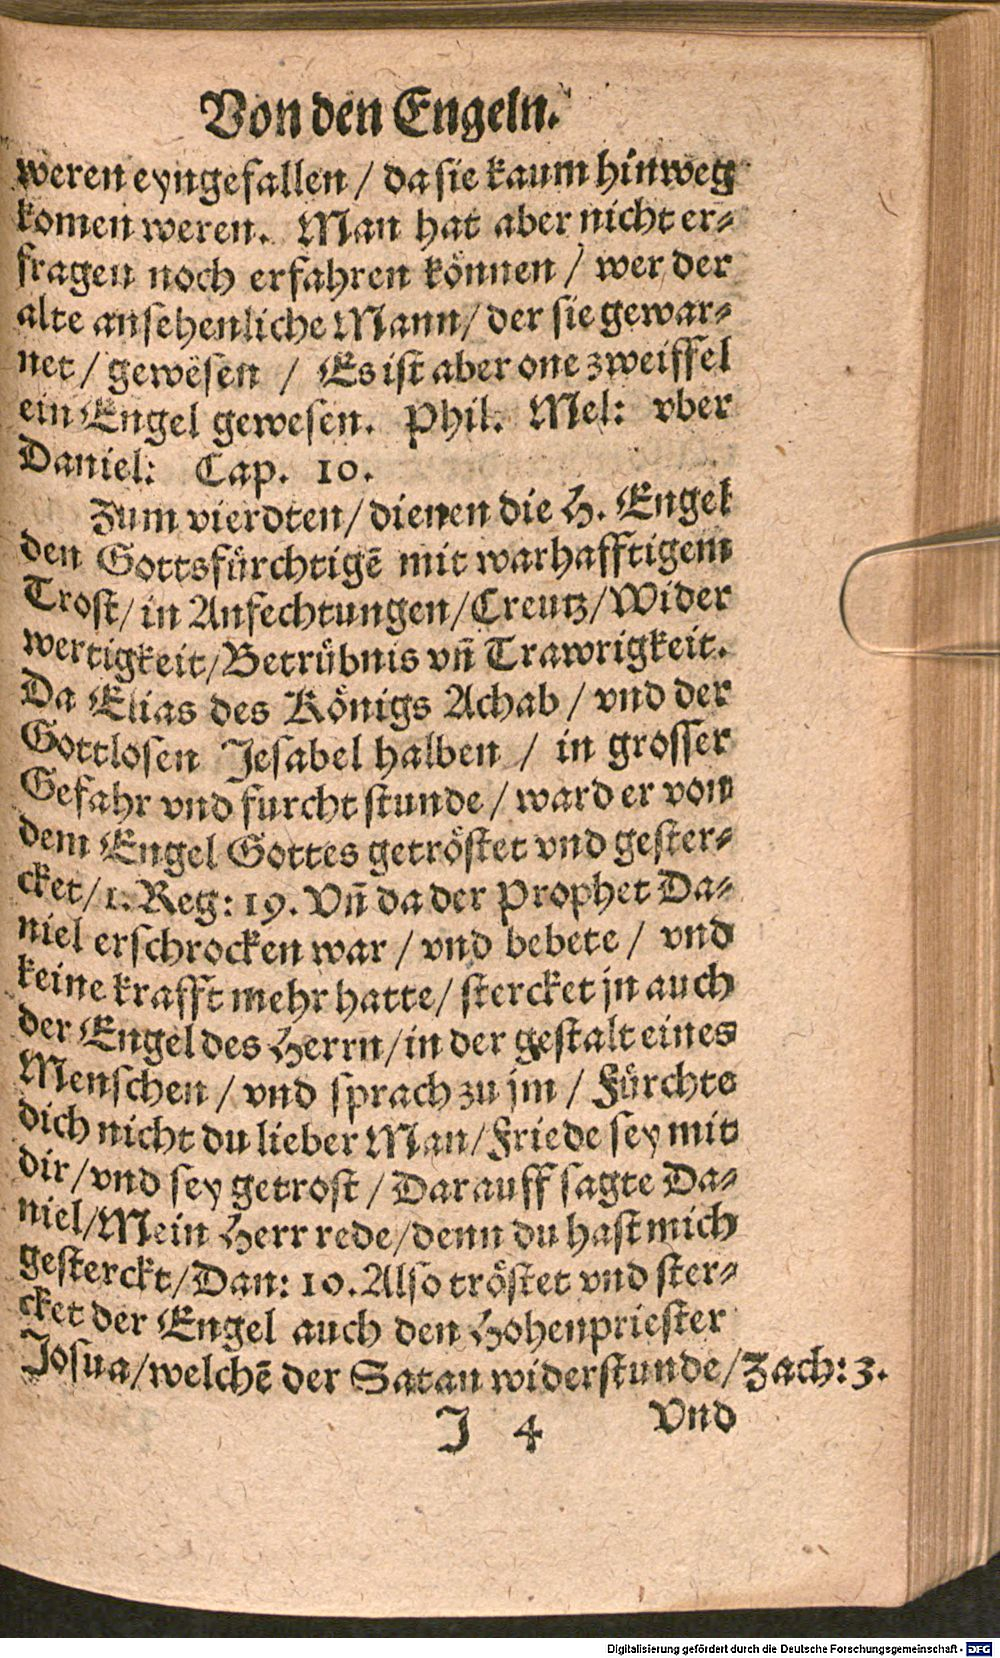 Von den Engeln.
weren eyngefallen / da sie kaum hinweg
komen weren. Man hat aber nicht er⸗
fragen noch erfahren können / wer der
alte ansehenliche Mann / der sie gewar⸗
net / gewesen / Es ist aber one zweiffel
ein Engel gewesen. Phil. Mel: vber
Daniel: Cap. 10.
Zum vierdten / dienen die H. Engel
den Gottsfürchtigē mit warhafftigem
Trost / in Anfechtungen / Creutz / Wider
wertigkeit / Betrübnis vñ Trawrigkeit.
Da Elias des Königs Achab / vnd der
Gottlosen Jesabel halben / in grosser
Gefahr vnd furcht stunde / ward er von
dem Engel Gottes getröstet vnd gester⸗
cket / 1. Reg: 19. Vñ da der Prophet Da⸗
niel erschrocken war / vnd bebete / vnd
keine krafft mehr hatte / stercket jn auch
der Engel des Herrn / in der gestalt eines
Menschen / vnd sprach zu jm / Fürchte
dich nicht du lieber Man / Friede sey mit
dir / vnd sey getrost / Darauff sagte Da⸗
niel / Mein Herr rede / denn du hast mich
gesterckt / Dan: 10. Also tröstet vnd ster⸗
cket der Engel auch den Hohenpriester
Josua / welchē der Satan widerstunde / Zach: 3.
J 4 Vnd
Digitalisierung gefördert durch die Deutsche Forschungsgemeinschaft - DFG